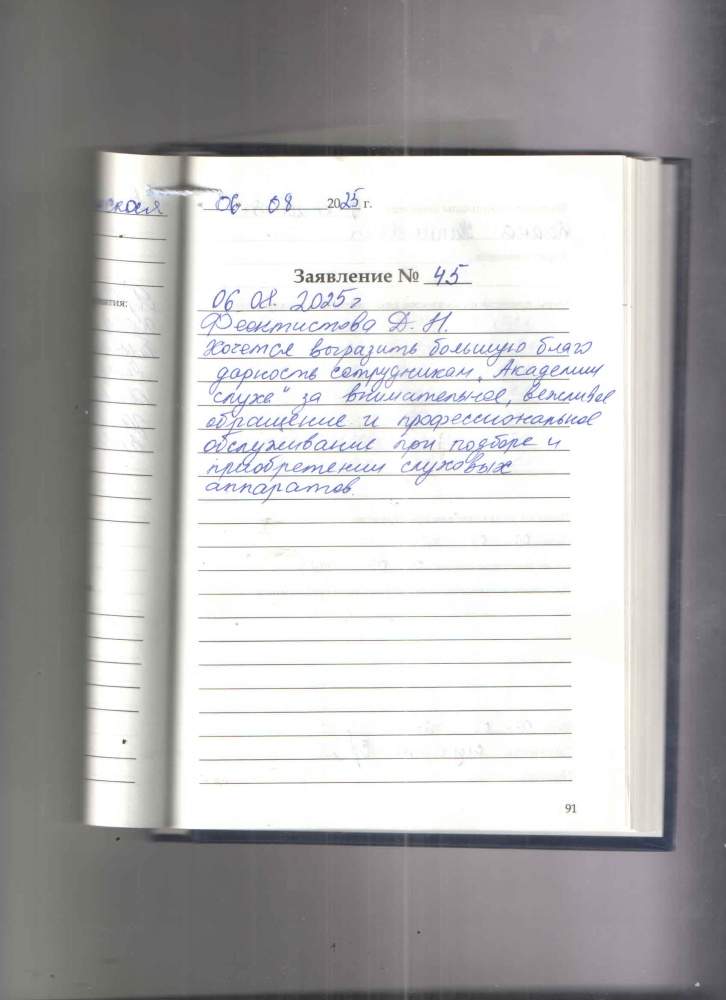 06 08 2025 г.
Заявление № 45
06 08. 2025 г
Феоктистова Д. Н.
Хочется выразить большую благо
дарность сотрудникам „Академии
слуха" за внимательное, вежливое
обращение и профессиональное
обслуживание при подборе и
приобретении слуховых
аппаратов.
91